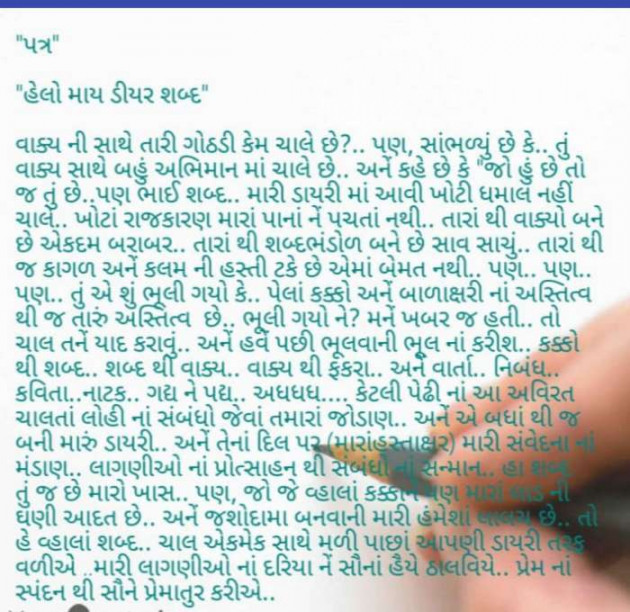 "પત્ર"
"હેલો માય ડીયર શબ્દ"
વાક્ય ની સાથે તારી ગોઠડી કેમ ચાલે છે?.. પણ, સાંભળ્યું છે કે.. તું
વાક્ય સાથે બહું અભિમાન માં ચાલે છે.. અનેં કહે છે કે "જો હું છે તો
જ તું છે..પણ ભાઈ શબ્દ.. મારી ડાયરી માં આવી ખોટી ધમાલ નહીં
ચાલે.. ખોટાં રાજકારણ મારાં પાનાં નેં પચતાં નથી.. તારાં થી વાક્યો બને
છે એકદમ બરાબર.. તારાં થી શબ્દભંડોળ બને છે સાવ સાચું.. તારાં થી
જ કાગળ અનેં કલમ ની હસ્તી ટકે છે એમાં બેમત નથી.. પણ.. પણ..
પણ.. તું એ શું ભૂલી ગયો કે.. પેલાં કક્કો અનેં બાળાક્ષરી નાં અસ્તિત્વ
થી જ તારું અસ્તિત્વ છે.. ભૂલી ગયો ને? મનેં ખબર જ હતી.. તો
ચાલ તનેં યાદ કરાવું.. અનેં હવેં પછી ભૂલવાની ભૂલ નાં કરીશ.. કક્કો
થી શબ્દ.. શબ્દ થી વાક્ય.. વાક્ય થી ફકરા.. અનેં વાર્તા.. નિબંધ..
કવિતા..નાટક.. ગદ્ય ને પદ્ય.. અધધધ.... કેટલી પેઢી નાં આ અવિરત
ચાલતાં લોહી નાં સંબંધો જેવાં તમારાં જોડાણ.. અનેં એ બધાં થી જ
બની મારું ડાયરી.. અનેં તેનાં દિલ પર (મારાંહસ્તાક્ષર) મારી સંવેદના નાં
મંડાણ.. લાગણીઓ નાં પ્રોત્સાહન થી સંબંધો નાં સન્માન.. હા શબ્દ
તું જ છે મારો ખાસ.. પણ, જો જે વ્હાલાં કક્કાનેં પણ મારાં લાડ ની
ઘણી આદત છે.. અનેં જશોદામા બનવાની મારી હંમેશાં લાલચ છે.. તો
હે વ્હાલાં શબ્દ.. ચાલ એકમેક સાથે મળી પાછાં આપણી ડાયરી તરફ
વળીએ ..મારી લાગણીઓ નાં દરિયા નેં સૌનાં હૈયે ઠાલવિયે.. પ્રેમ નાં
સ્પંદન થી સૌને પ્રેમાતુર કરીએ..